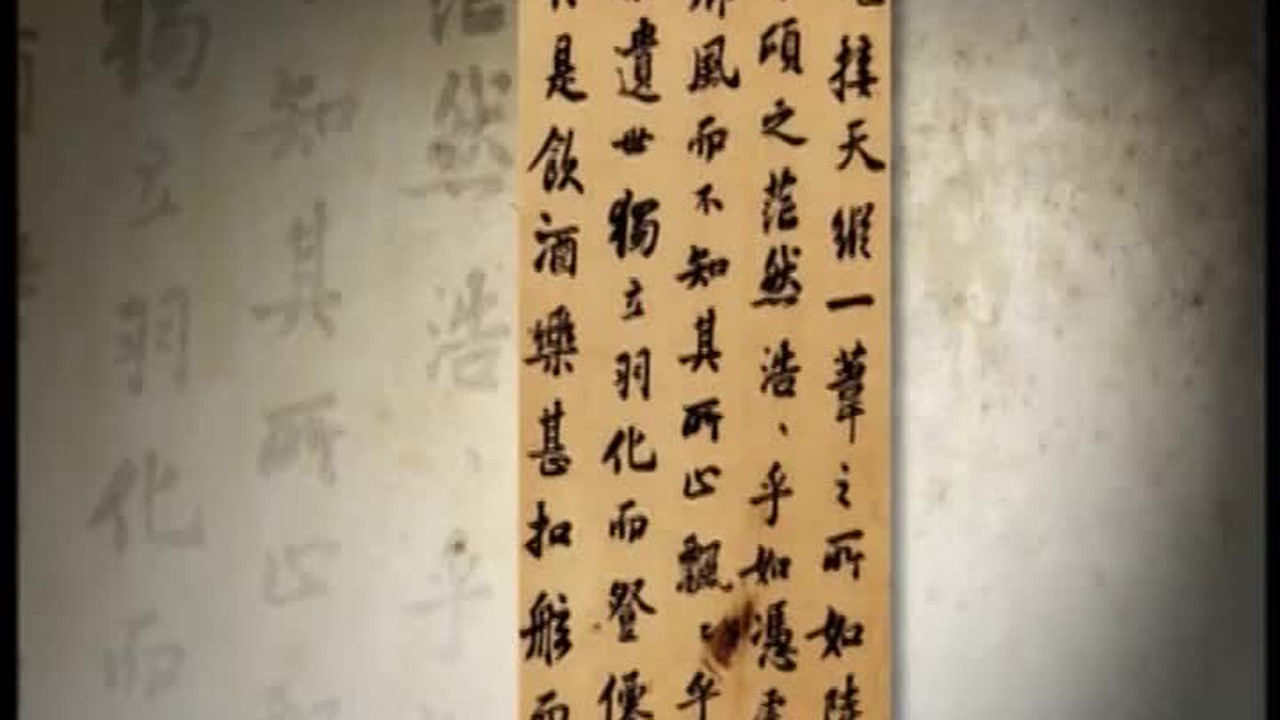 接天縱一葦之所如
頃之茫然浩、乎如憑
風而不知其所止飄〻乎
遺世獨立羽化而登僊
是飲酒樂甚扣舷而
然浩、乎
知其所止
獨立羽化而